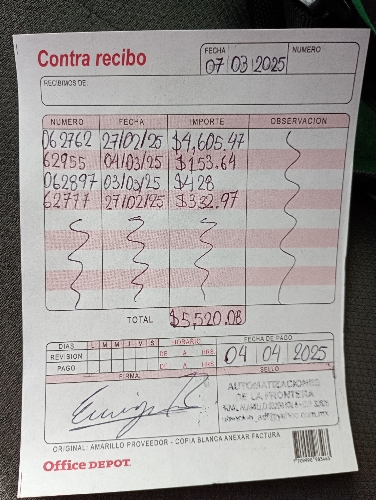 Contra recibo
FECHA NUMERO
07 03 2025
RECIBIMOS DE:
NUMERO FECHA IMPORTE OBSERVACION
062762 27/02/25 $4,605.47
62955 04/03/25 $153.64
062897 03/03/25 $428
62777 27/02/25 $332.97
TOTAL $5,520.08
DIAS L M M J V S HORARIO FECHA DE PAGO
REVISION DE A HRS. 04 04 2025
PAGO DE A HRS.
FIRMA SELLO
AUTOMATIZACIONES
DE LA FRONTERA
ORIGINAL: AMARILLO PROVEEDOR - COPIA BLANCA ANEXAR FACTURA
Office DEPOT.